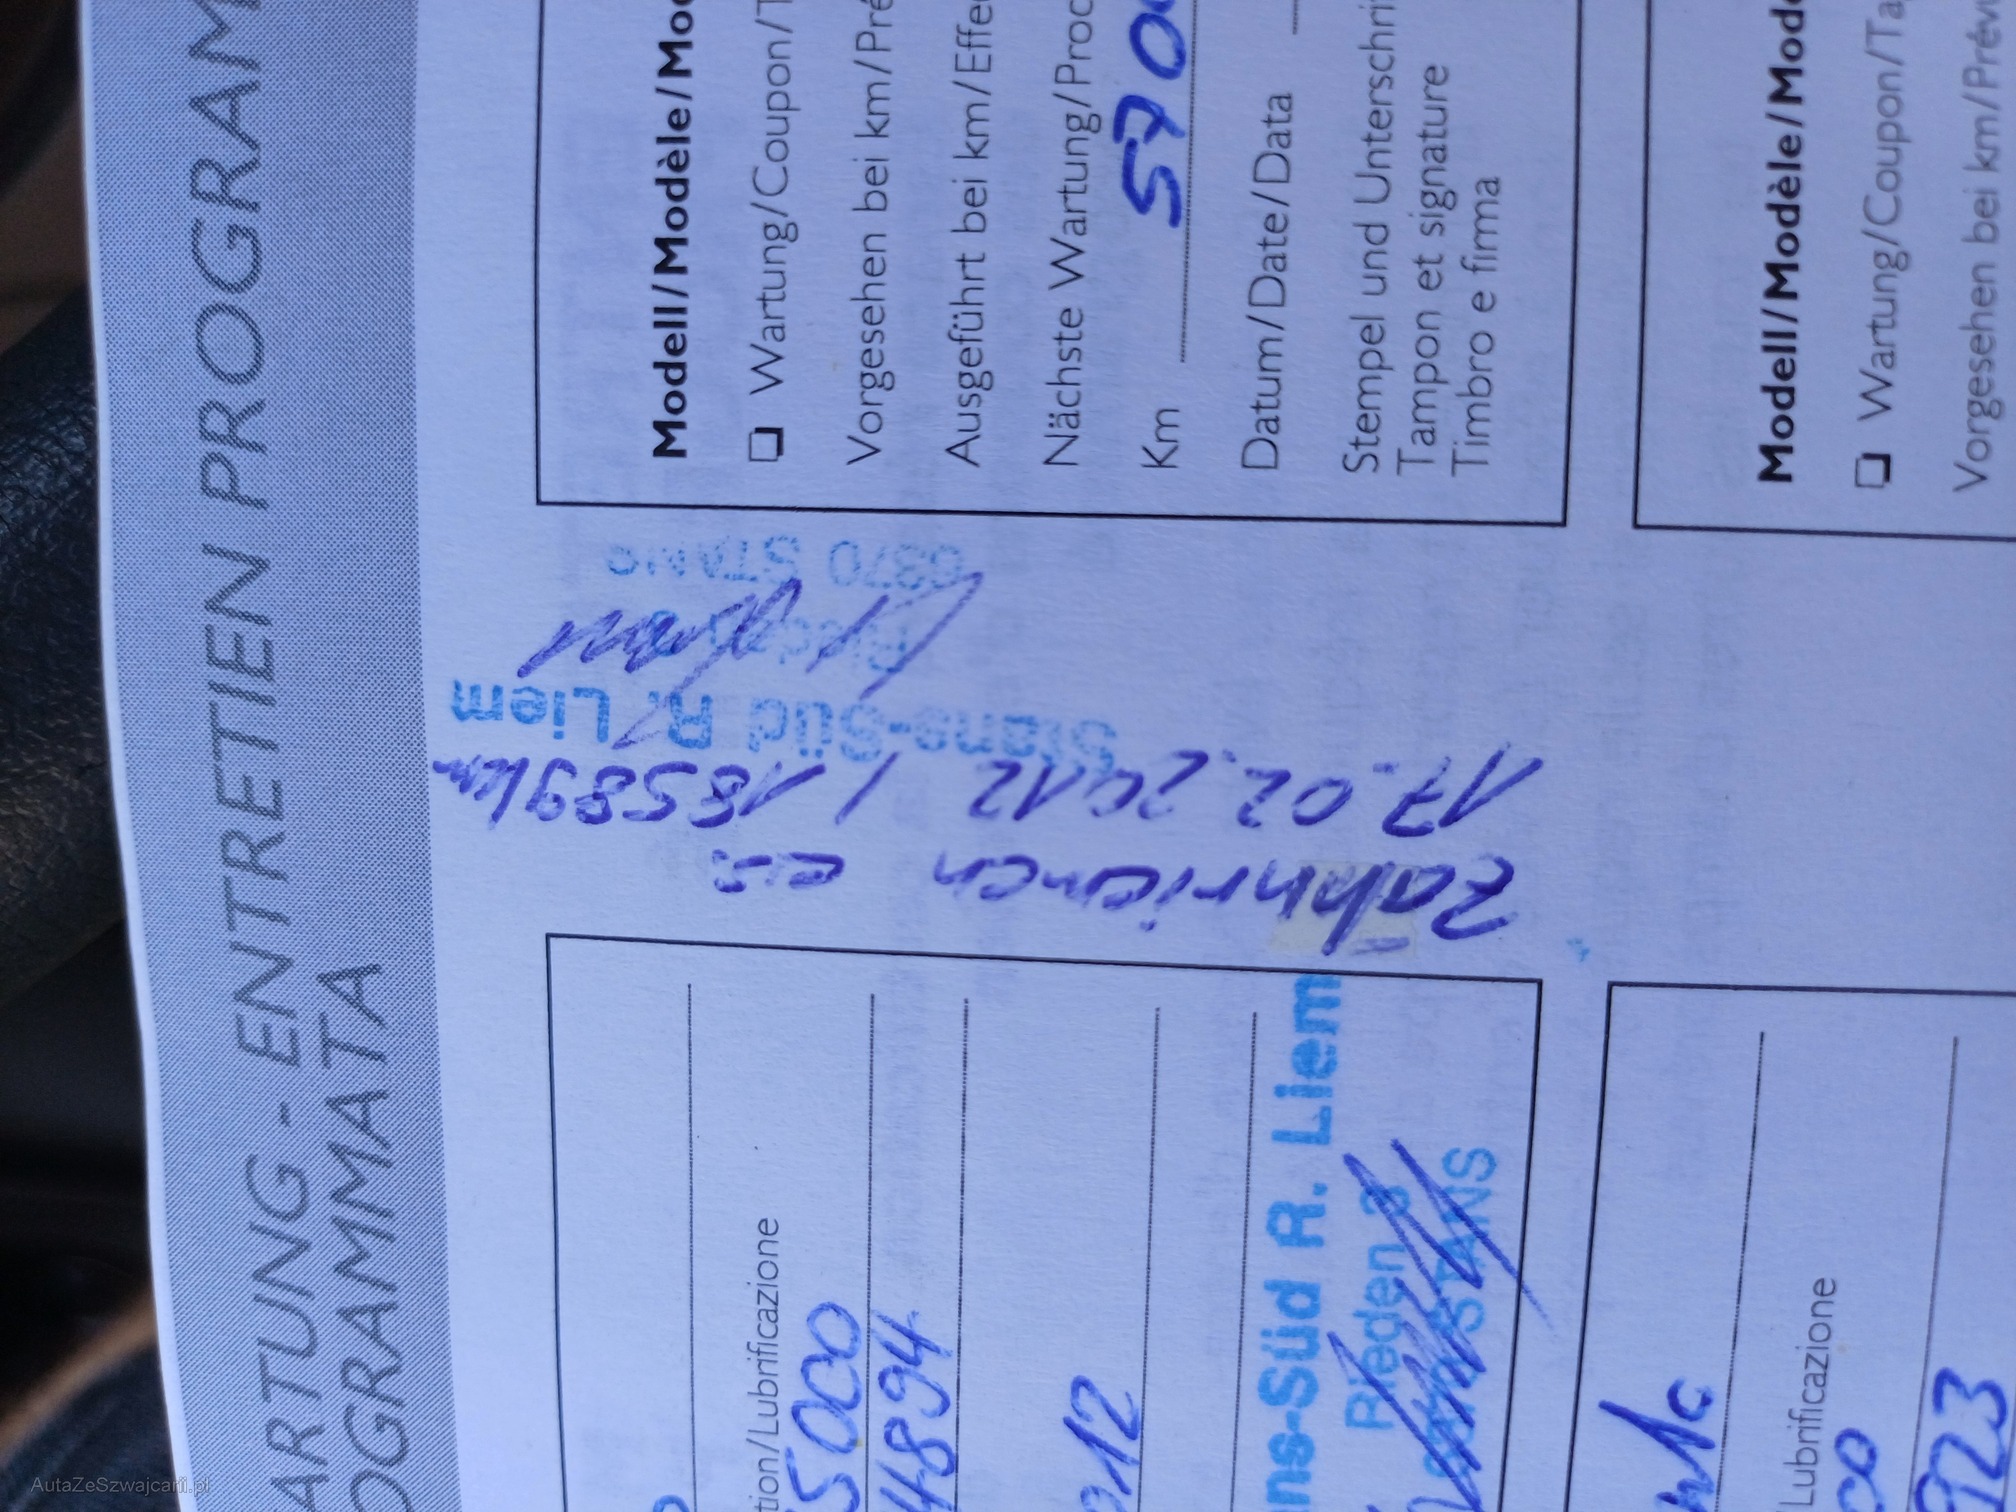 ARTUNG - ENTRETIEN PROGRAM
OGRAMMATA
Lubrificazione
5000
4894
12
ns-Süd R. Liem
Rieden 3
STANS
Zahnriemen
17.02.2012 / 185891km
Stans-Süd R. Liem
6370 STANS
Modell/Modèle/Mod
❑ Wartung/Coupon/T
Vorgesehen bei km/Pré
Ausgeführt bei km/Effe
Nächste Wartung/Proc
Km 570
Datum/Date/Data
Stempel und Unterschri
Tampon et signature
Timbro e firma
Lubrificazione
Modell/Modèle/Mode
❑ Wartung/Coupon/Ta
Vorgesehen bei km/Prév
AutaZeSzwajcarii.pl